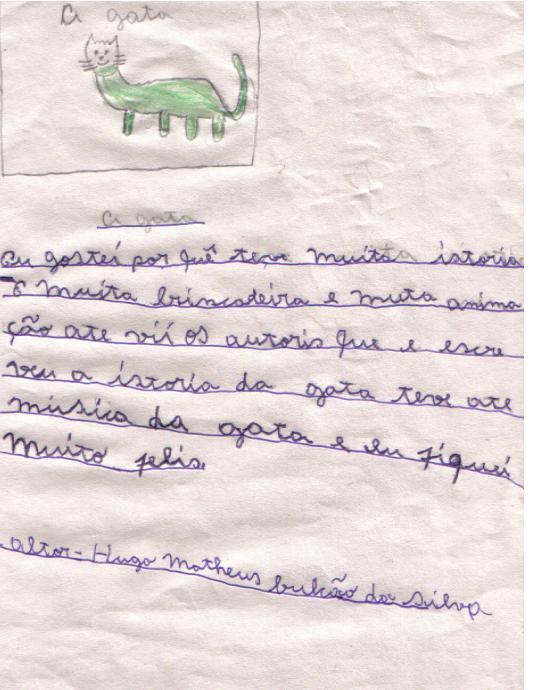 A gata
A gata
Eu gostei por quê teve muita istoria
E muita brincadeira e muta anima
ção ate vii os autoris que e escre
veu a istoria da gata teve ate
música da gata e eu fiquei
muito felis.
Altor - Hugo Matheus bulcão da silva